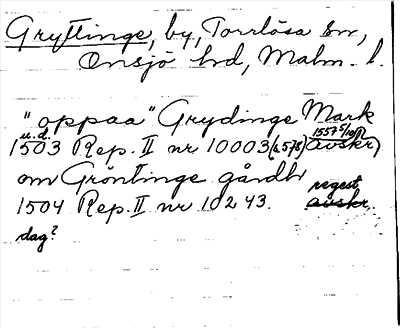 Gryttinge, by, Torrlösa sn,
Onsjö hd, Malm. l.
"oppaa" Grydinge Mark
u.d. 1557 5/10
1503 Rep. II nr 10003 (avskr)
om Gröntinge gårdh
regest
1504 Rep. II nr 10243. avskr.
dag?